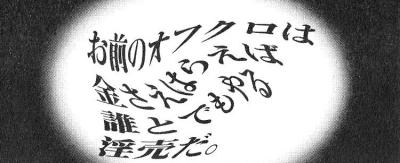 お前のオフクロは
金さえはらえば
誰とでもやる
淫売だ。